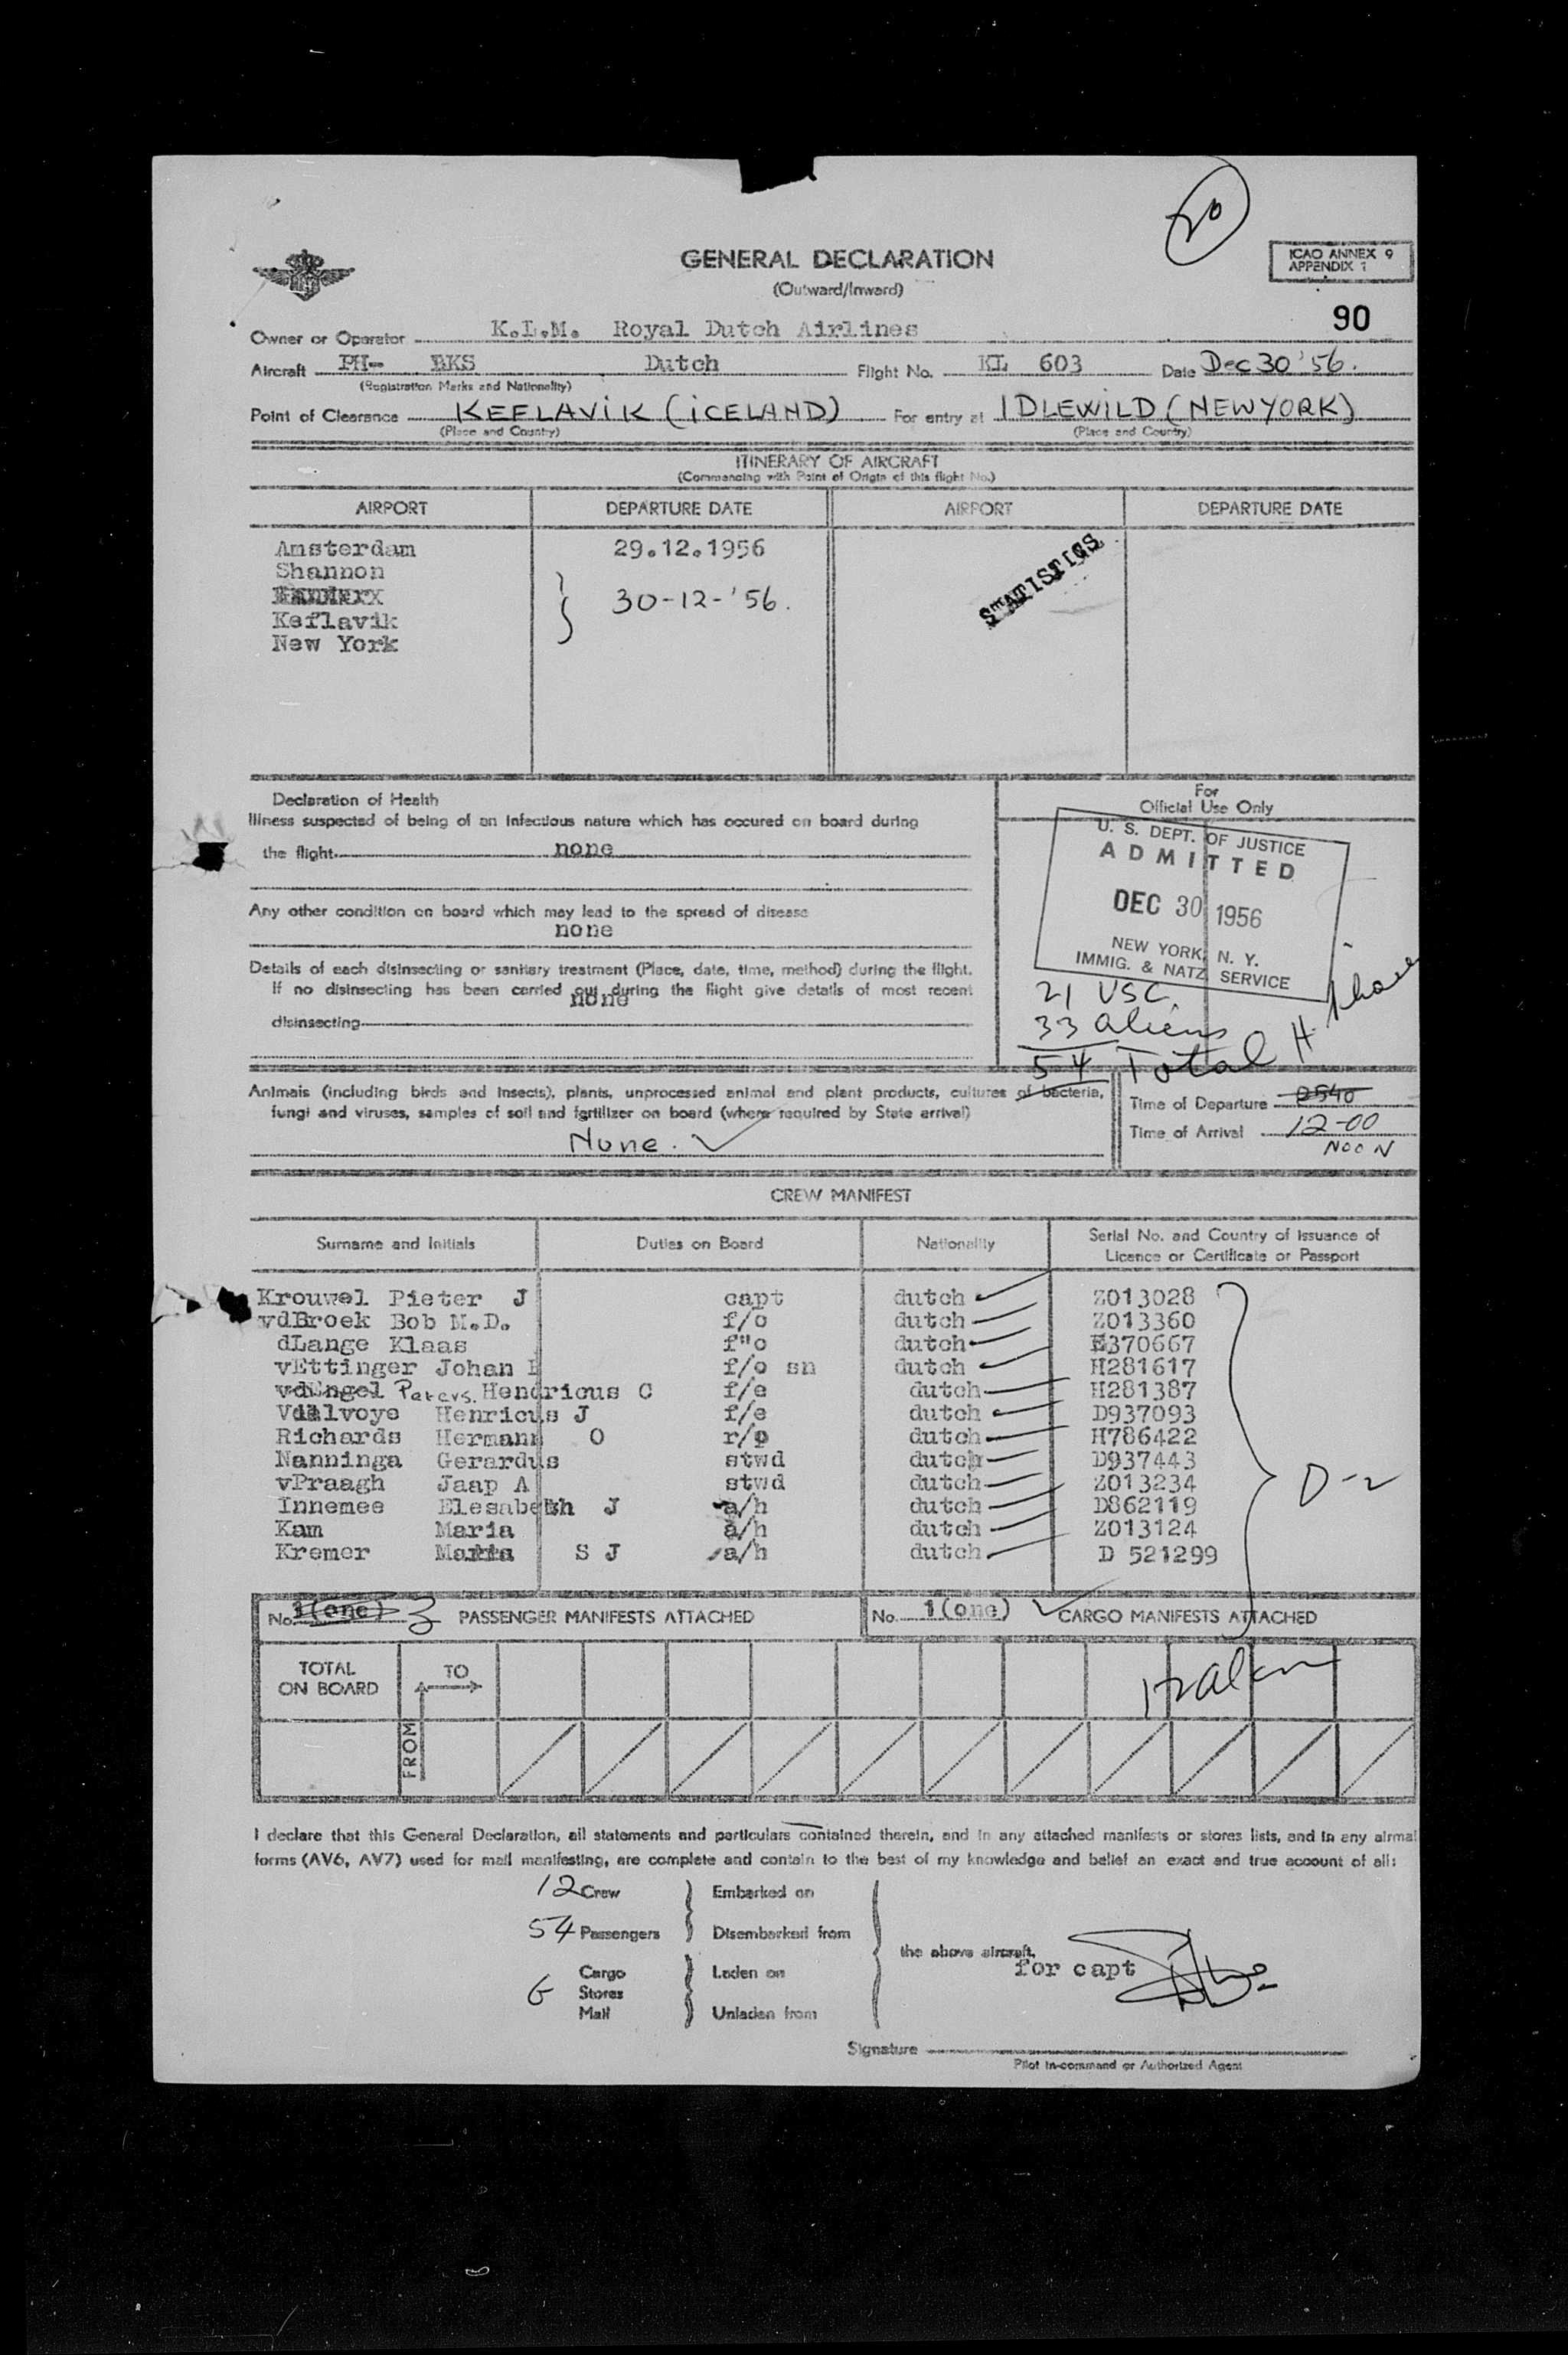 20
GENERAL DECLARATION
(Outward/Inward)
ICAO ANNEX 9
APPENDIX 1
90
Owner or Operator K.L.M. Royal Dutch Airlines
Aircraft PH- BKS Dutch Flight No. KL 603 Date Dec 30 '56.
(Registration Marks and Nationality)
Point of Clearance KEFLAVIK (ICELAND) For entry at IDLEWILD (NEW YORK)
(Place and Country) (Place and Country)
ITINERARY OF AIRCRAFT
(Commencing with Point of Origin of this flight No.)
AIRPORT DEPARTURE DATE AIRPORT DEPARTURE DATE
Amsterdam 29.12.1956
Shannon
30-12-'56.
Keflavik
New York
STATISTICS
Declaration of Health
Illness suspected of being of an infectious nature which has occured on board during
the flight none
Any other condition on board which may lead to the spread of disease
none
Details of each disinsecting or sanitary treatment (Place, date, time, method) during the flight.
If no disinsecting has been carried out during the flight give details of most recent
none
disinsecting
For
Official Use Only
U. S. DEPT. OF JUSTICE
ADMITTED
DEC 30 1956
NEW YORK, N. Y.
IMMIG. & NATZ SERVICE
21 USC
33 aliens
54 Total
Animals (including birds and insects), plants, unprocessed animal and plant products, cultures of bacteria,
fungi and viruses, samples of soil and fertilizer on board (where required by State arrival)
None.
Time of Departure 0540
Time of Arrival 12-00
NOON
CREW MANIFEST
Surname and Initials Duties on Board Nationality Serial No. and Country of Issuance of
Licence or Certificate or Passport
Krouwel Pieter J capt dutch Z013028
vdBroek Bob M.D. f/o dutch Z013360
dLange Klaas f"o dutch 370667
vEttinger Johan f/o sn dutch H281617
vdEngel Peters. Hendricus C f/e dutch H281387
Henricus J f/e dutch D937093
Richards Hermann O r/o dutch H786422
Nanninga Gerardus stwd dutch D937443
vPraagh Jaap A stwd dutch Z013234
Innemee Elesabeth J a/h dutch D862119
Kam Maria a/h dutch Z013124
Kremer Maria S J a/h dutch D 521299
D-2
No. 1(one) 3 PASSENGER MANIFESTS ATTACHED No. 1(one) CARGO MANIFESTS ATTACHED
TOTAL
ON BOARD
TO
FROM
I declare that this General Declaration, all statements and particulars contained therein, and in any attached manifests or stores lists, and in any airmail
forms (AV6, AV7) used for mail manifesting, are complete and contain to the best of my knowledge and belief an exact and true account of all:
12 Crew Embarked on
54 Passengers Disembarked from
the above aircraft.
for capt
Cargo Laden on
G Stores
Mail Unladen from
Signature
Pilot in-command or Authorized Agent